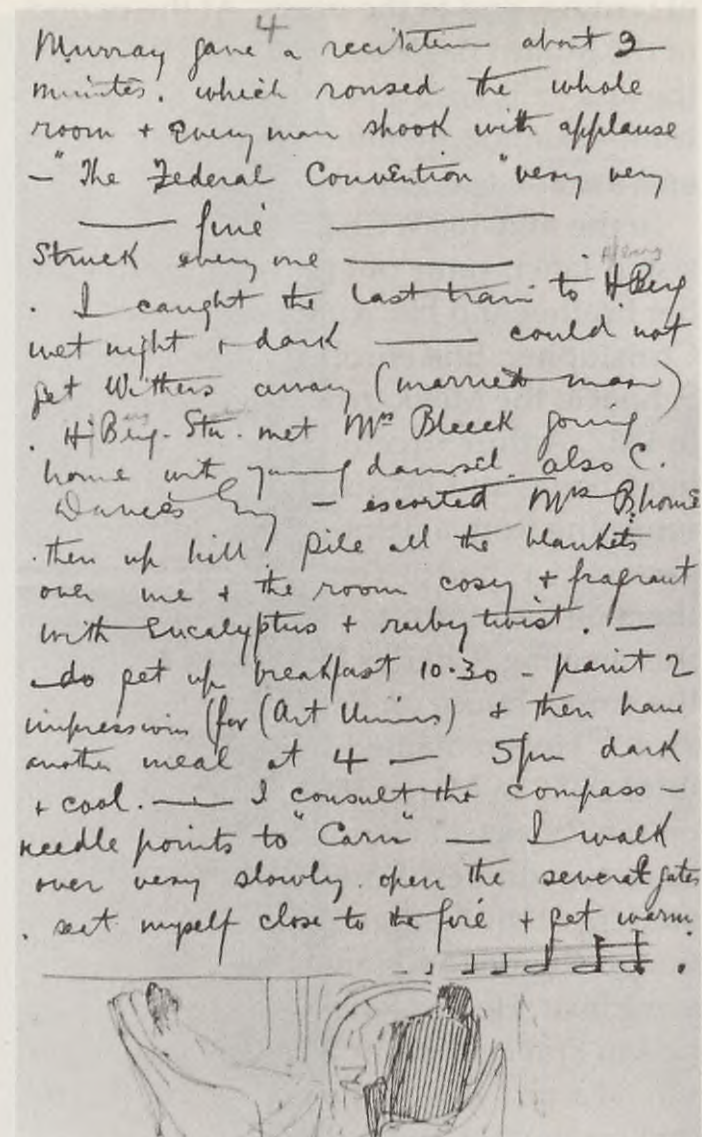 4
Murray gave a recitation about 2
minutes. which roused the whole
room + every man shook with applause
— "The Federal Convention" very very
fine
Struck every one
. I caught the last train to H. Berg
wet night + dark — could not
get Withers away (married man)
. H. Berg. Stn. met Mrs Bleeck going
home with young damsel. also C.
Davies Esq — escorted Mrs B. home
. then up hill! Pile all the blankets
over me + the room cosy + fragrant
with Eucalyptus + ruby twist. —
do get up breakfast 10.30 - paint 2
impressions (for (Art Unions) + then have
another meal at 4 — 5pm dark
+ cool. — I consult the compass —
needle points to "Carn" — I walk
over very slowly. open the several gates
. set myself close to the fire + get warm.